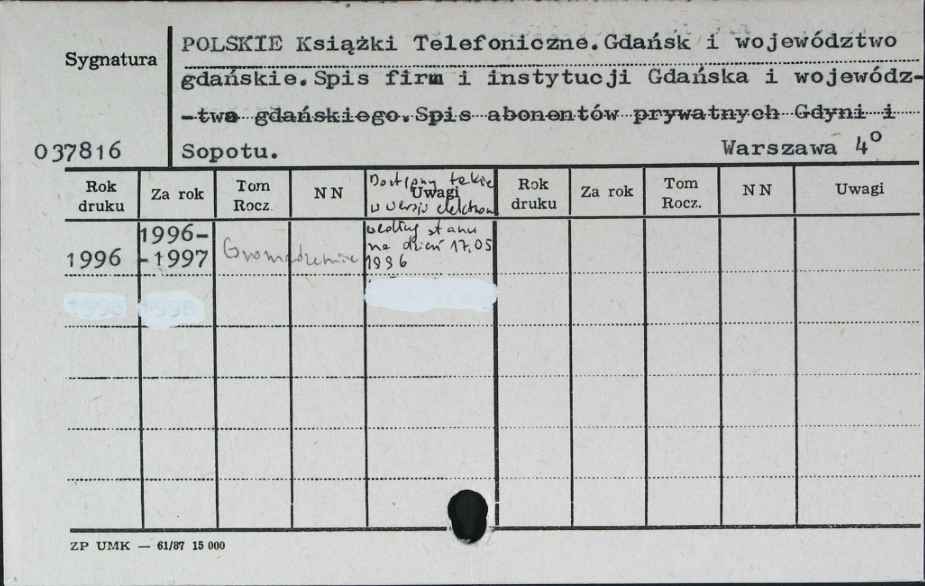 POLSKIE Książki Telefoniczne.Gdańsk i województwo
Sygnatura
gdańskie.Spis firm i instytucji Gdańska i wojewódz-
-twa gdańskiego.Spis abonentów prywatnych Gdyni i
037816 Sopotu. Warszawa 4°
Rok druku Za rok Tom Rocz. NN Uwagi Rok druku Za rok Tom Rocz. NN Uwagi
Dostępny także
w wersji elektron
1996 1996-
-1997 Gromadzenie
według stanu
na dzień 17.05
1996
1996 1998
ZP UMK — 61/87 15 000